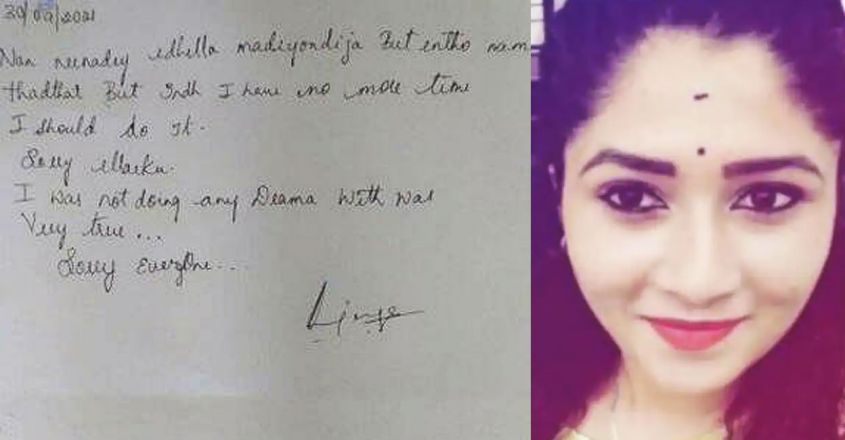 30/09/2021
Nan neenadey edhella madiyondija But entho nam
thadhat But Indh I have no more time
I should do it.
Sorry ellarku.
I was not doing any Drama with was
Very true ...
Sorry Everyone...